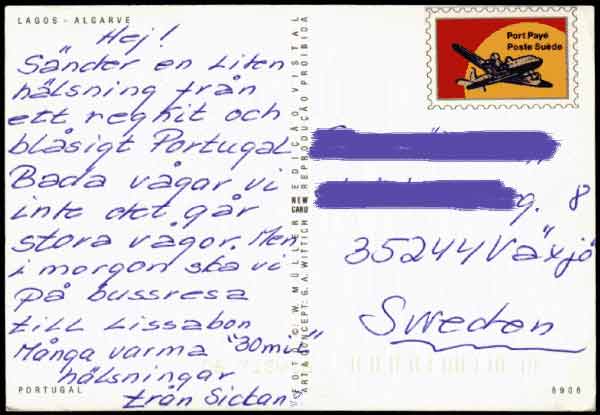 LAGOS - ALGARVE
Hej!
Sänder en liten
hälsning från
ett regnit och
blåsigt Portugal
Bada vågar vi
inte det går
stora vågor. Men
i morgon ska vi
på bussresa
till Lissabon
"30 mil"
Många varma
hälsningar
från Sickan
PORTUGAL
FOTO: © W. MÜLLER EDIÇÃO VISTAL
ART A CONCEPT: G. A. WITTICH REPRODUÇÃO PROIBIDA
NEW CARD
Port Payé
Poste Suède
g. 8
35244 Växjö
Sweden
6906